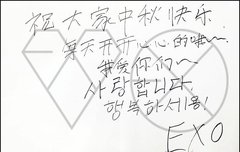 祝大家中秋快乐
每天开开心心的哦~
我爱你们~
사랑합니다
행복하세용!
EXO